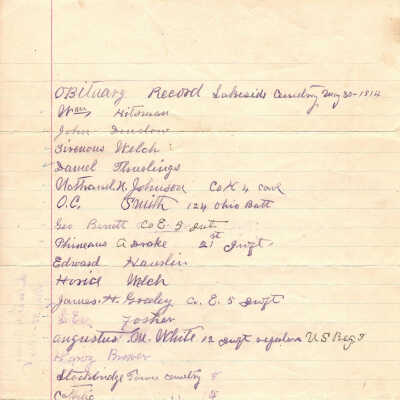 OBituary Record Lakeside Cemetery May 30-1914
Wm Kitsman
John Denslow
Sirenous Welch
Daniel Thurlings
Nathanel H. Johnson Co K 4 cav
O.C. Smith 124 Ohio Batt
Geo Benett Co E 5 Inft
Phineaus A Drake 21st Inft
Edward Hanslin
Horid Welch
James. H. Graley Co. E. 5 Inft
Fosher
augustus M. White 12 Inft regulars U S Reg
Brower
Stockbridge Town cemetry 8
Catholic